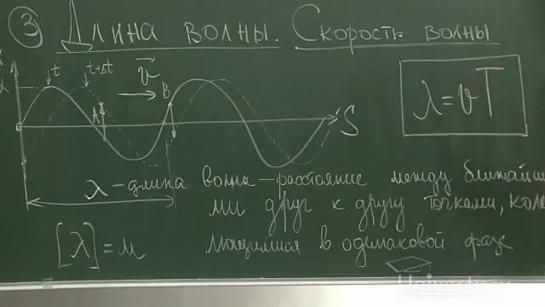 3 Длина волны. Скорость волны
t t+Δt v⃗ B
A S
λ = vT
λ - длина волны - расстояние между ближайши-
ми друг к другу точками, коле
[λ] = м
в одинаковой фазе